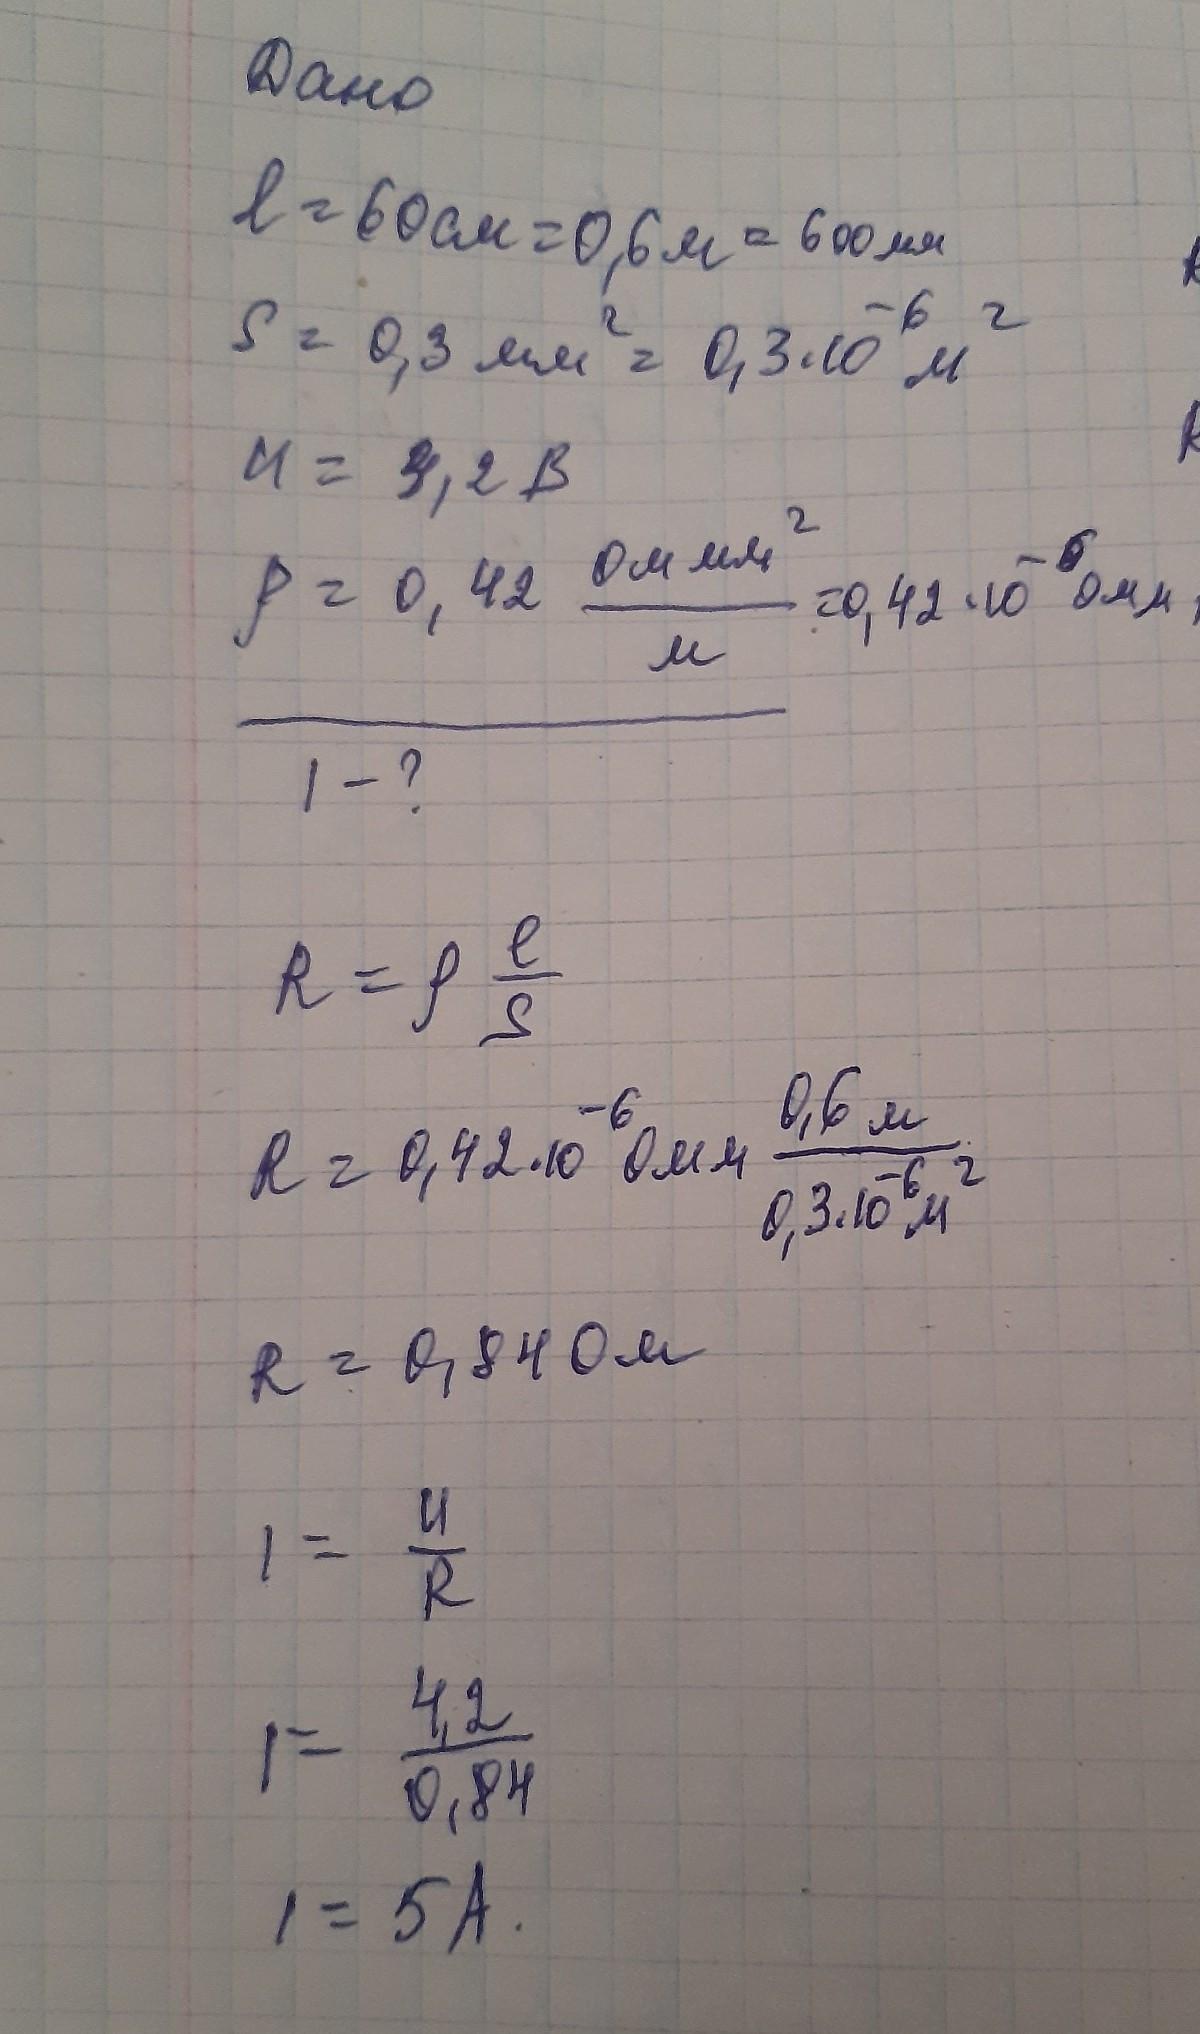 Дано
l = 60см = 0,6 м = 600мм
S = 0,3 мм² = 0,3·10⁻⁶ м²
U = 4,2 В
ρ = 0,42 Ом мм²/м = 0,42·10⁻⁶ Ом м
I - ?
R = ρ l/S
R = 0,42·10⁻⁶ Ом м 0,6 м/0,3·10⁻⁶ м²
R = 0,84 Ом
I = U/R
I = 4,2/0,84
I = 5 А.